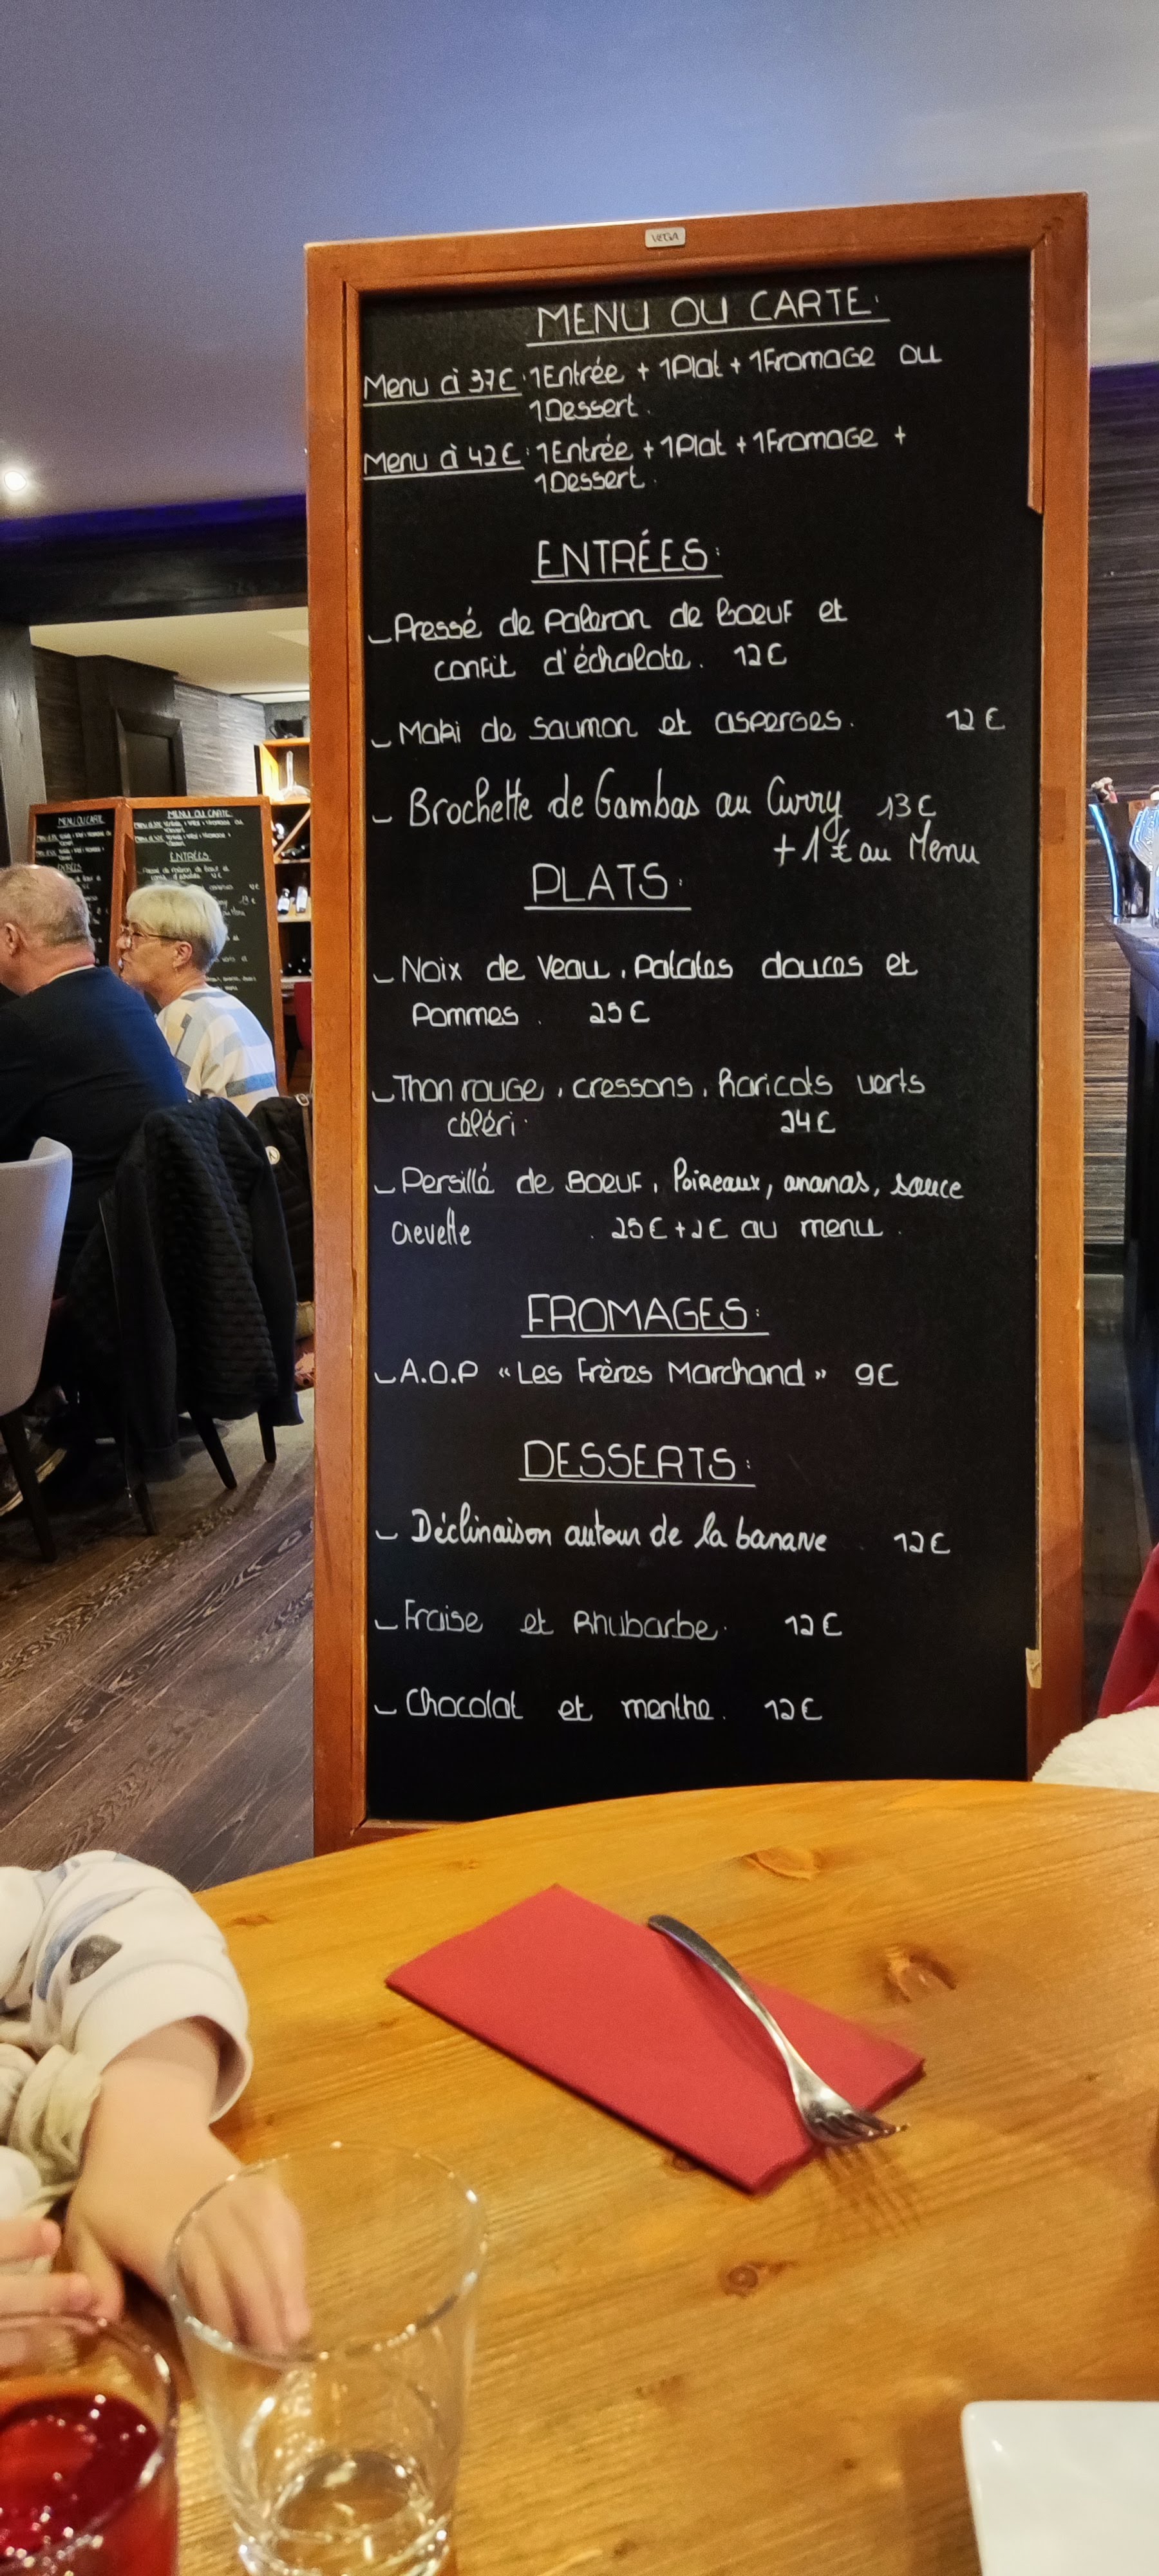 VEGA
MENU OU CARTE:
Menu à 37€: 1Entrée + 1Plat + 1Fromage ou
1Dessert.
Menu à 42€: 1Entrée + 1Plat + 1Fromage +
1Dessert.
ENTRÉES:
- Pressé de Paleron de boeuf et
confit d'échalote. 12€
- Maki de Saumon et asperges. 12€
- Brochette de Gambas au Curry 13€
+ 1€ au Menu
PLATS:
- Noix de veau, Patates douces et
Pommes. 25€
- Thon rouge, cressons, haricots verts
céleri. 24€
- Persillé de Boeuf, Poireaux, ananas, sauce
Crevette . 25€ + 2€ au menu.
FROMAGES:
- A.O.P « Les Frères Marchand » 9€
DESSERTS:
- Déclinaison autour de la banane. 12€
- Fraise et Rhubarbe. 12€
- Chocolat et menthe. 12€
MENU OU CARTE
MENU OU CARTE
ENTRÉES